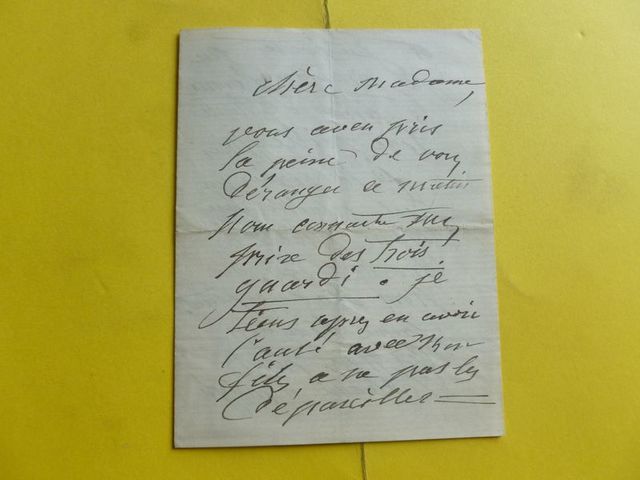 chère Madame,
vous avez pris
la peine de vous
déranger ce matin
pour connaitre mes
prix des trois
guardi. je
tiens après en avoir
causé avec mon
fils, a ne pas les
dépareiller